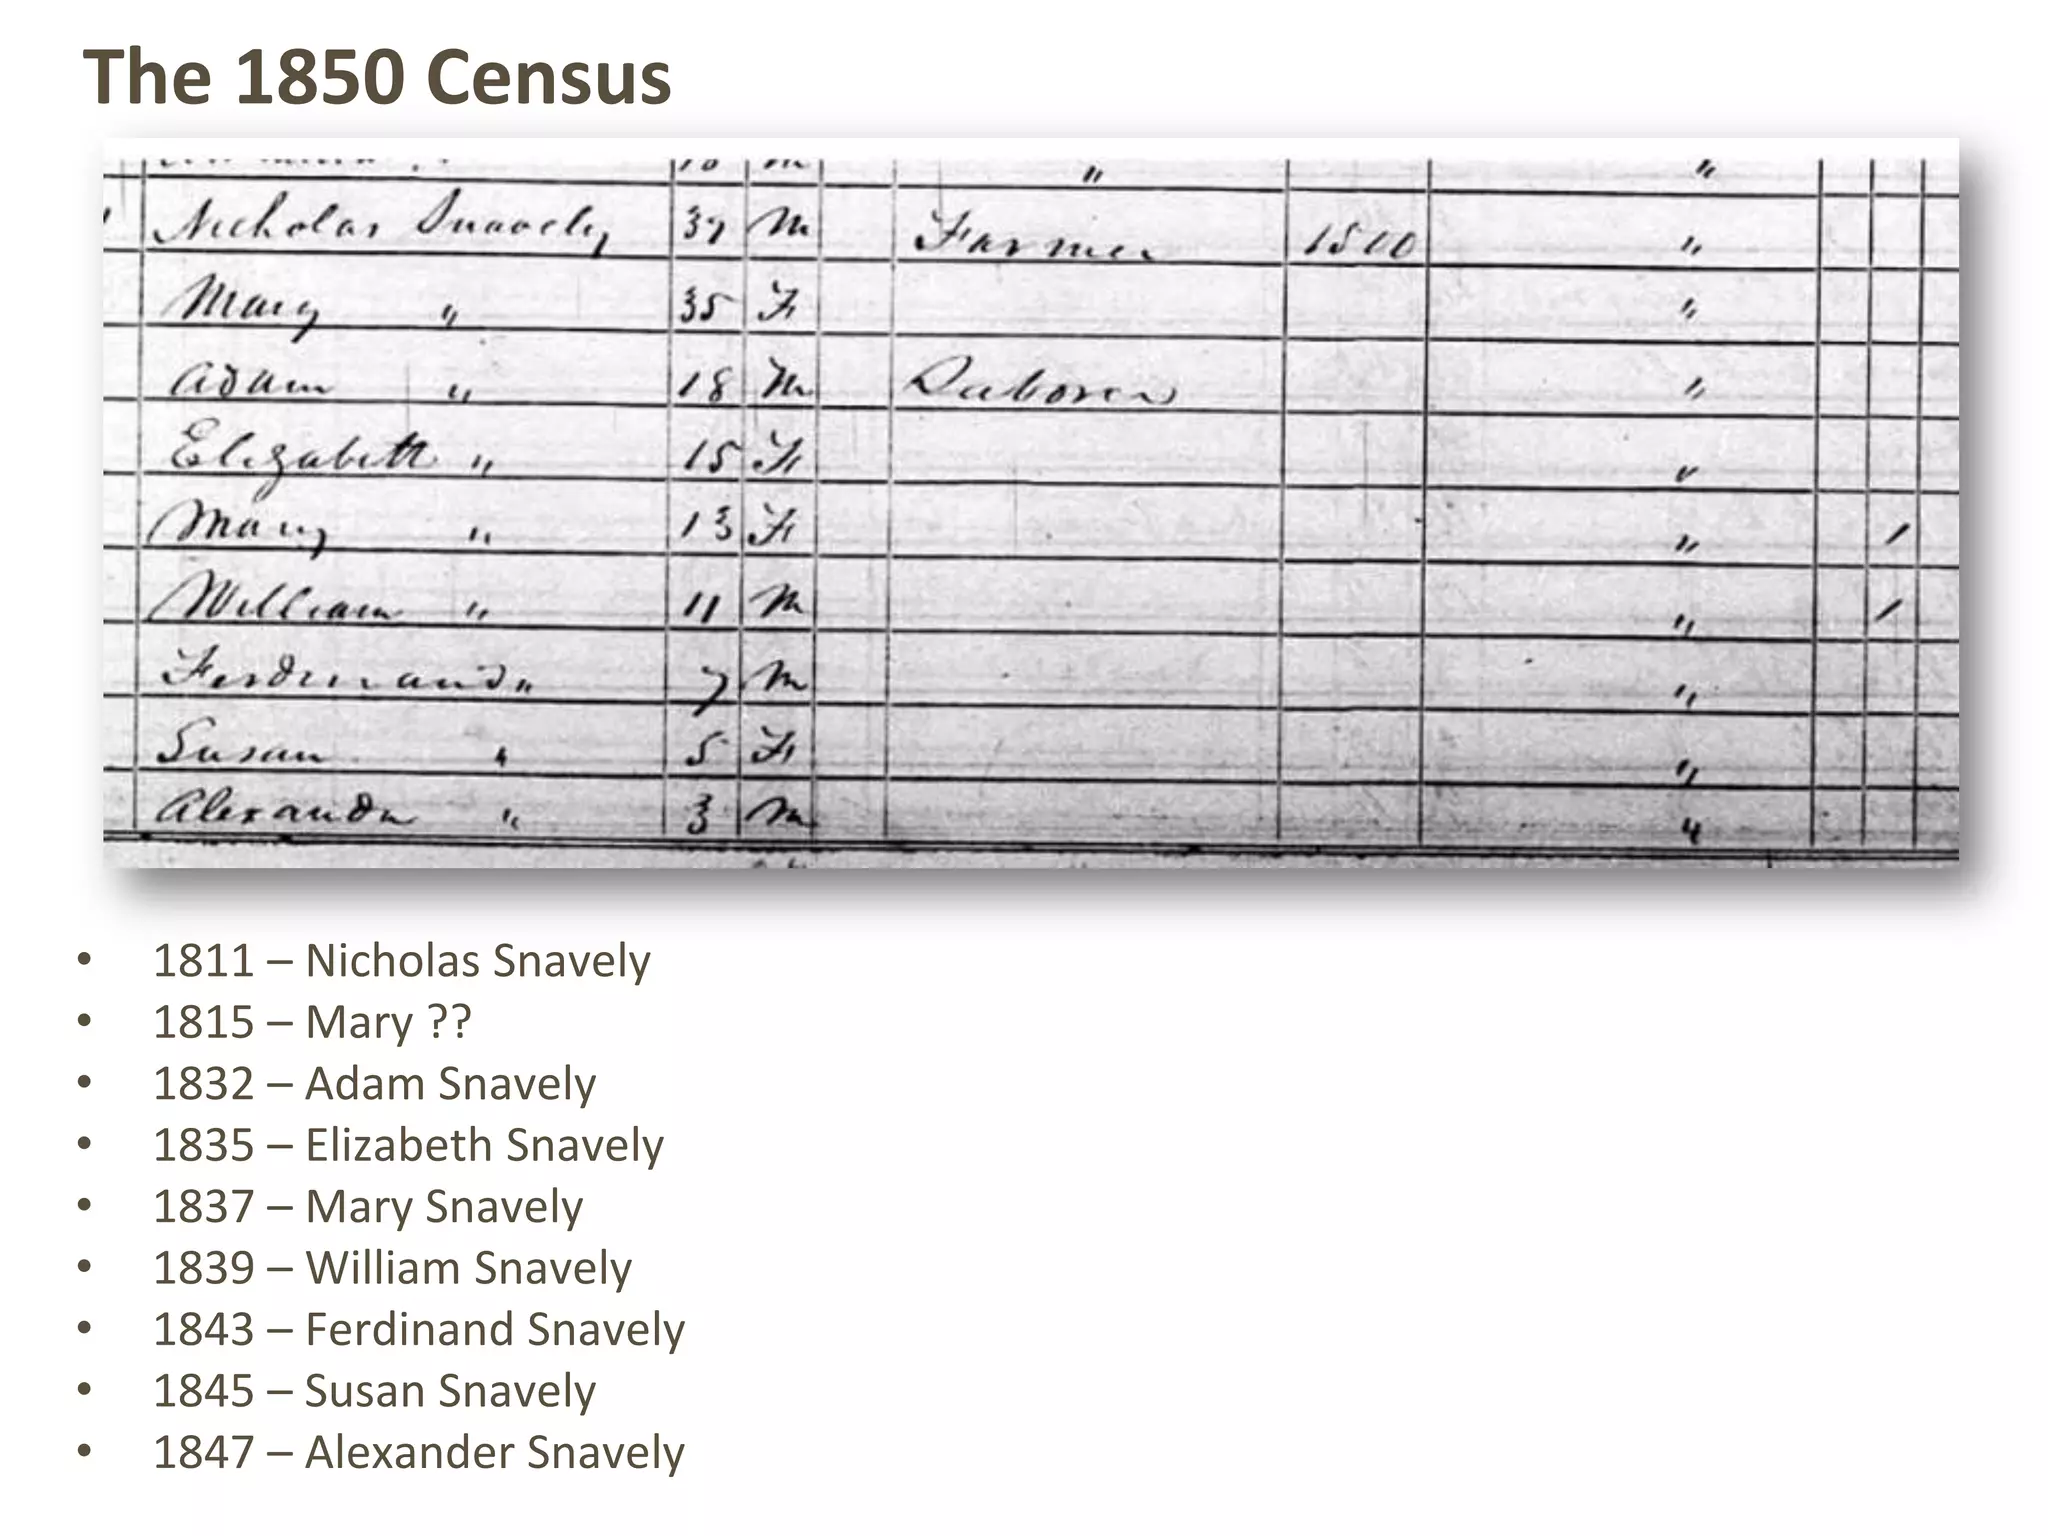 The 1850 Census
18 M " "
Nicholas Snavely 39 M Farmer 1500 "
Mary " 35 F "
Adam " 18 M Laborer "
Elizabeth " 15 F "
Mary " 13 F " /
William " 11 M " /
Ferdinand " 7 M "
Susan " 5 F "
Alexander " 3 M "
• 1811 – Nicholas Snavely
• 1815 – Mary ??
• 1832 – Adam Snavely
• 1835 – Elizabeth Snavely
• 1837 – Mary Snavely
• 1839 – William Snavely
• 1843 – Ferdinand Snavely
• 1845 – Susan Snavely
• 1847 – Alexander Snavely